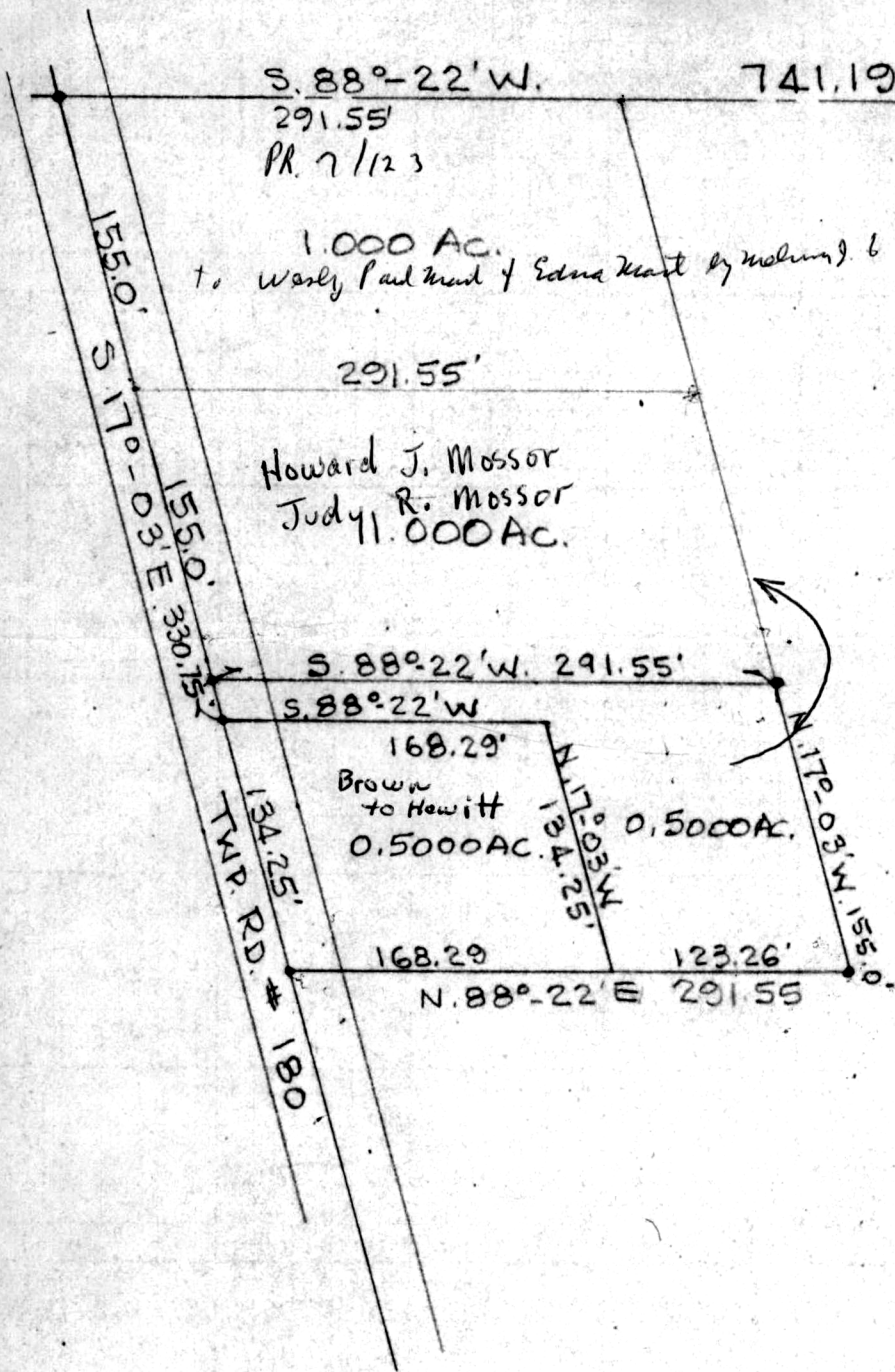 S. 88°-22'W. 741.19
291.55'
PR. 7/123
1.000 AC.
to Wesly Paul & Edna by
155.0'
291.55'
S 17°-03'E. 330.75'
Howard J. Mossor
Judy R. Mossor
1.000 AC.
155.0'
S. 88°-22'W. 291.55'
S. 88°-22'W
168.29'
Brown
to Hewitt
0.5000 AC.
N. 17°-03'W
134.25'
0.5000 AC.
N. 17°-03'W. 155.0.
134.25'
TWP. RD. # 180
168.29 123.26'
N. 88°-22' E 291.55